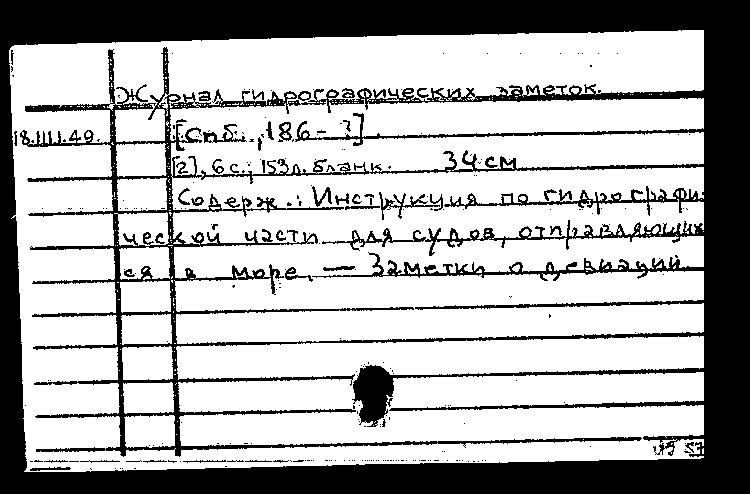 Журнал гидрографических заметок.
18.III1.49. [Спб., 186-?]
[2], 6 с.; 153 л. бланк. 34 см
Содерж.: Инструкция по гидрографи-
ческой части для судов, отправляющих
ся в море. — Заметки о девиации
57